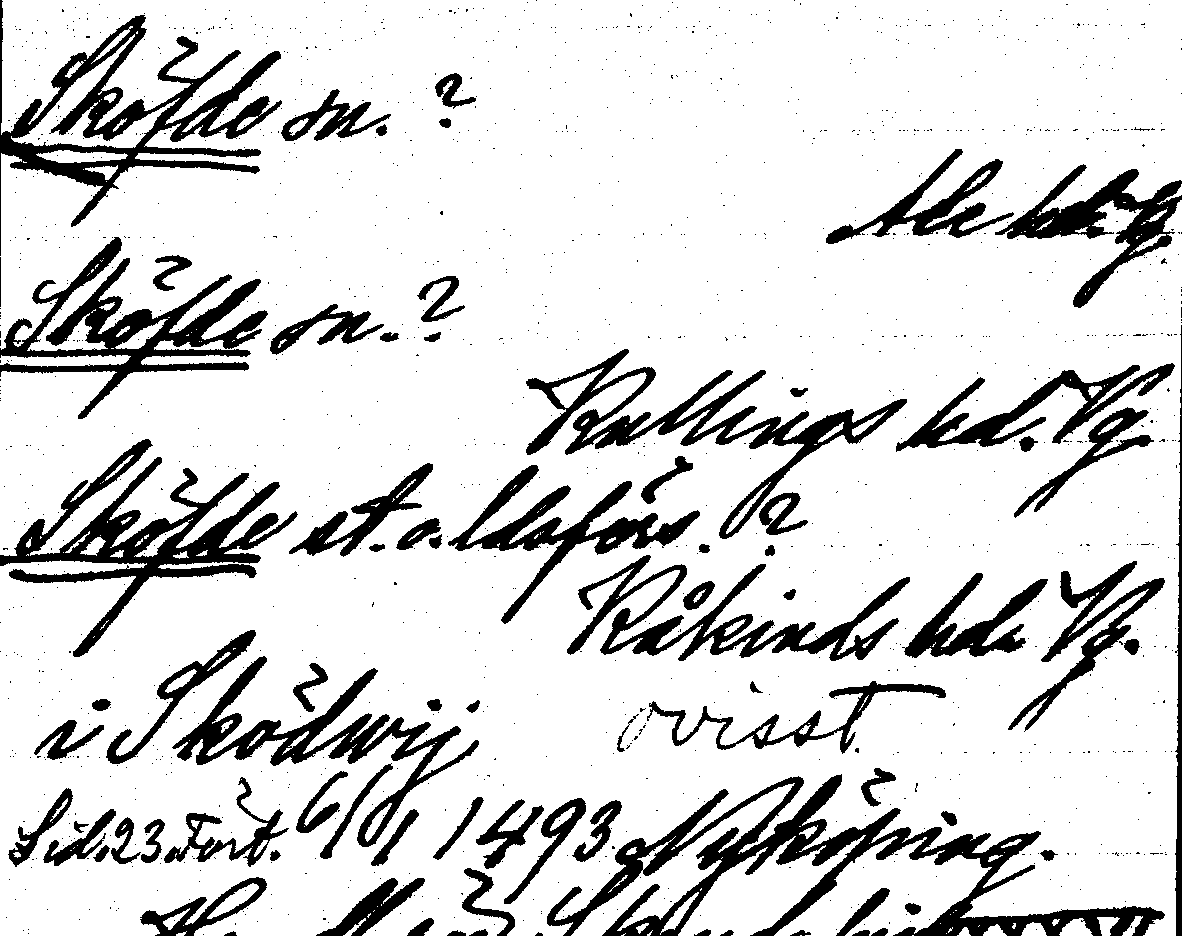 Sköfde sn. ?
Ale hd. Vg.
Sköfde sn. ?
Kullings hd. Vg.
Sköfde st. o. ldsförs. ?
Kåkinds hd. Vg.
i Sködwij ovisst
Sid. 23. Fört. 6/1 1493 Nyköping.